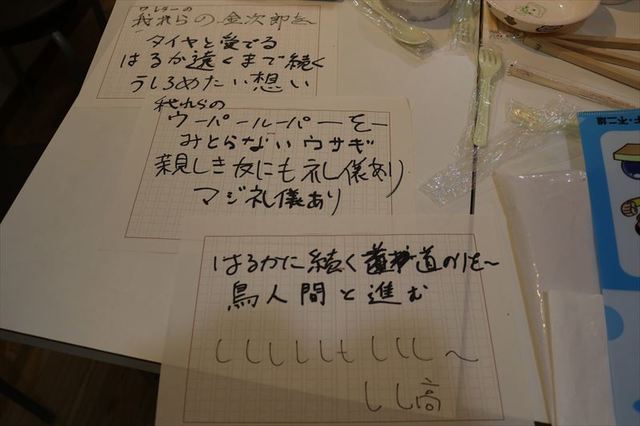 ワレラーの
我れらの金次郎を〜
タイヤと愛でる
はるか遠くまで続く
うしろめたい想い
我れらの
ウーパールーパーをー
みとらないウサギ
親しき友にも礼儀あり
マジ礼儀あり
はるかに続く道のりを〜
鳥人間と進む
しししししもししし〜
しし高